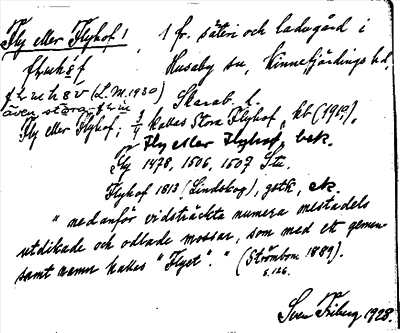 Fly eller Flyhof, 1 fr. säteri och ladugård i
Husaby sn, Kinnefjärdings hd,
(L. M. 1930) Skarab. l.
även stora
Fly eller Flyhof; 1/4 kallas Stora Flyhof, kb (1919).
Fly eller Flyhof, bek.
Fly 1478, 1506, 1507 Stu.
Flyhof 1813 (Lindskog), gstk, ek.
"nedanför vidsträckta numera mestadels
utdikade och odlade mossar, som med ett gemen-
samt namn kallas "Flyet"." (Strömbom 1889).
s. 126.
Sven Friberg 1928.